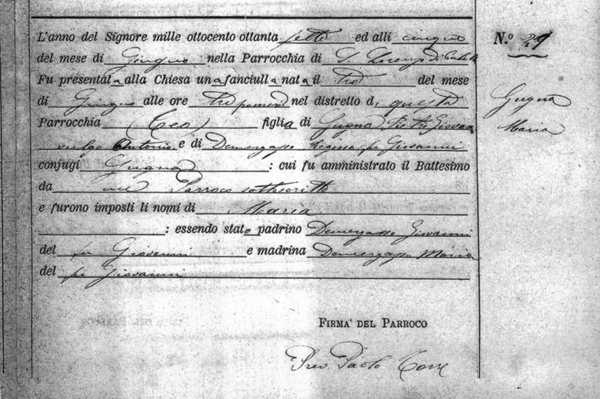 L'anno del Signore mille ottocento ottanta sette ed alli cinque
N.° 29
del mese di Giugno nella Parrocchia di S. Lorenzo di
Fu presentata alla Chiesa una fanciulla nata il Tre del mese
di Giugno alle ore tre pomerid nel distretto di questa
Parrocchia (Ceo) figlia di Gugna Giovanni
Gugna
Maria
vulgo Antonio e di Demergasso fu Giovanni
conjugi Gugna : cui fu amministrato il Battesimo
da me Parroco sottoscritto
e furono imposti li nomi di Maria
: essendo stato padrino Demergasso Giovanni
del fu Giovanni e madrina Demergasso Maria
del fu Giovanni
FIRMA DEL PARROCO
Paolo